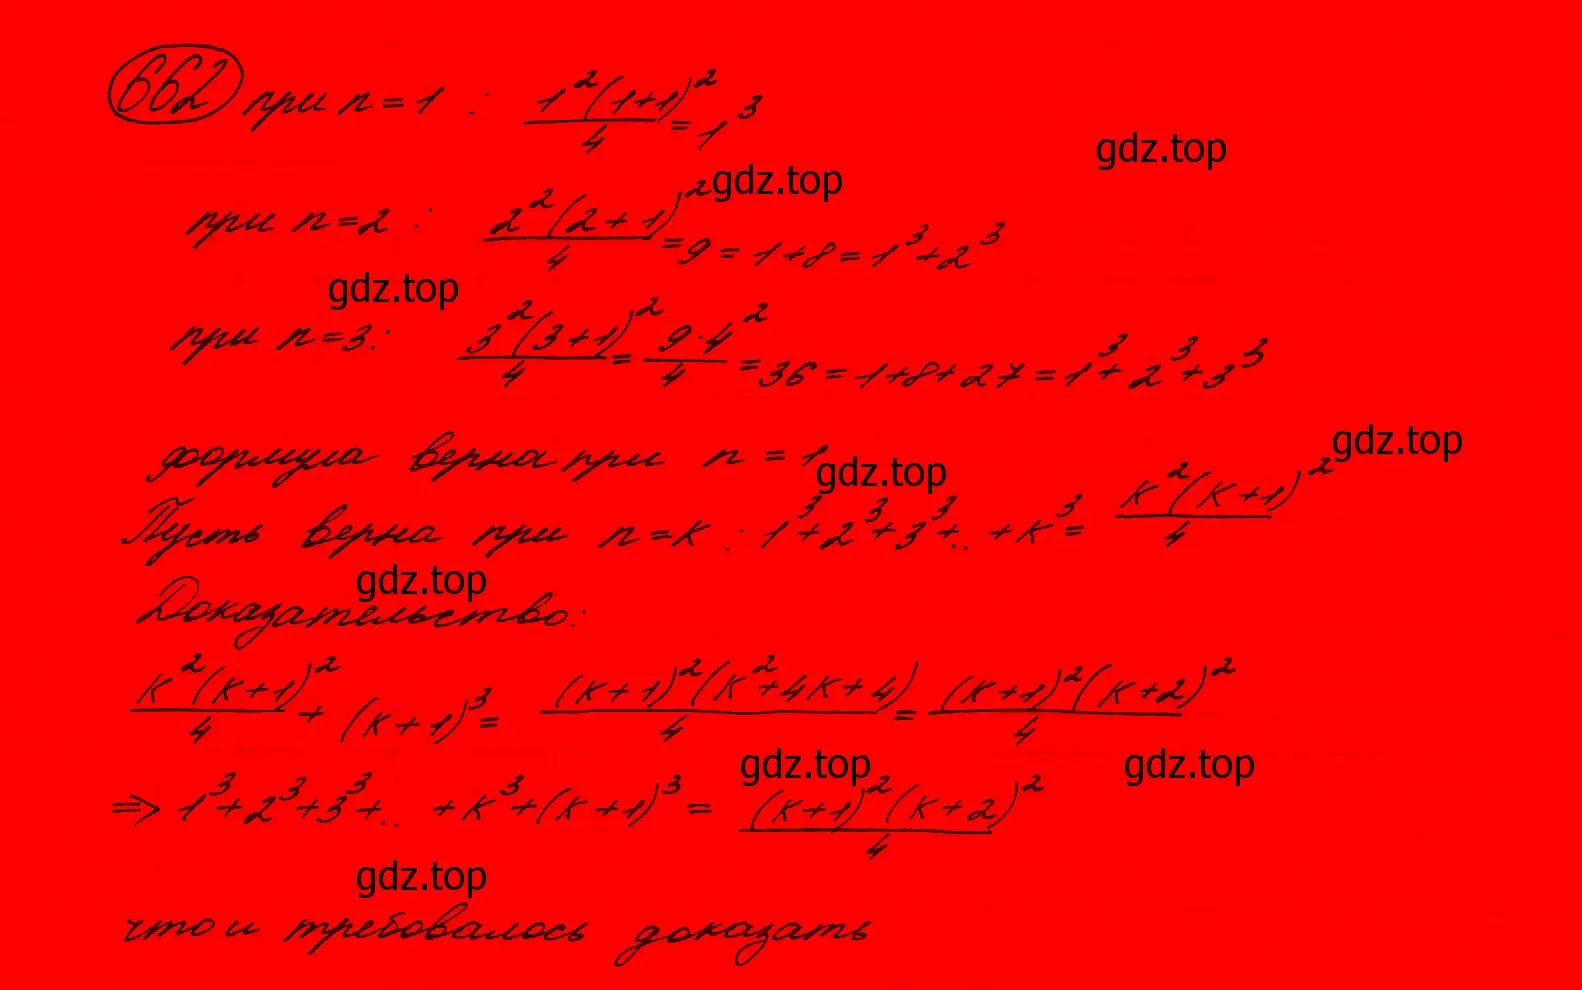 662 при n=1 : 1²(1+1)²/4 = 1³
gdz.top
gdz.top
при n=2 : 2²(2+1)²/4 = 9 = 1+8 = 1³+2³
gdz.top
при n=3: 3²(3+1)²/4 = 9·4²/4 = 36 = 1+8+27 = 1³+2³+3³
gdz.top
формула верна при n = 1
gdz.top
Пусть верна при n=k : 1³+2³+3³+.. +k³= k²(k+1)²/4
gdz.top
Доказательство:
k²(k+1)²/4 + (k+1)³ = (k+1)²(k²+4k+4)/4 = (k+1)²(k+2)²/4
gdz.top
gdz.top
⇒ 1³+2³+3³+.. +k³+(k+1)³ = (k+1)²(k+2)²/4
gdz.top
что и требовалось доказать